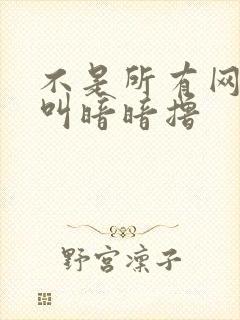 不是所有网
叫暗暗撸
野宫凛子